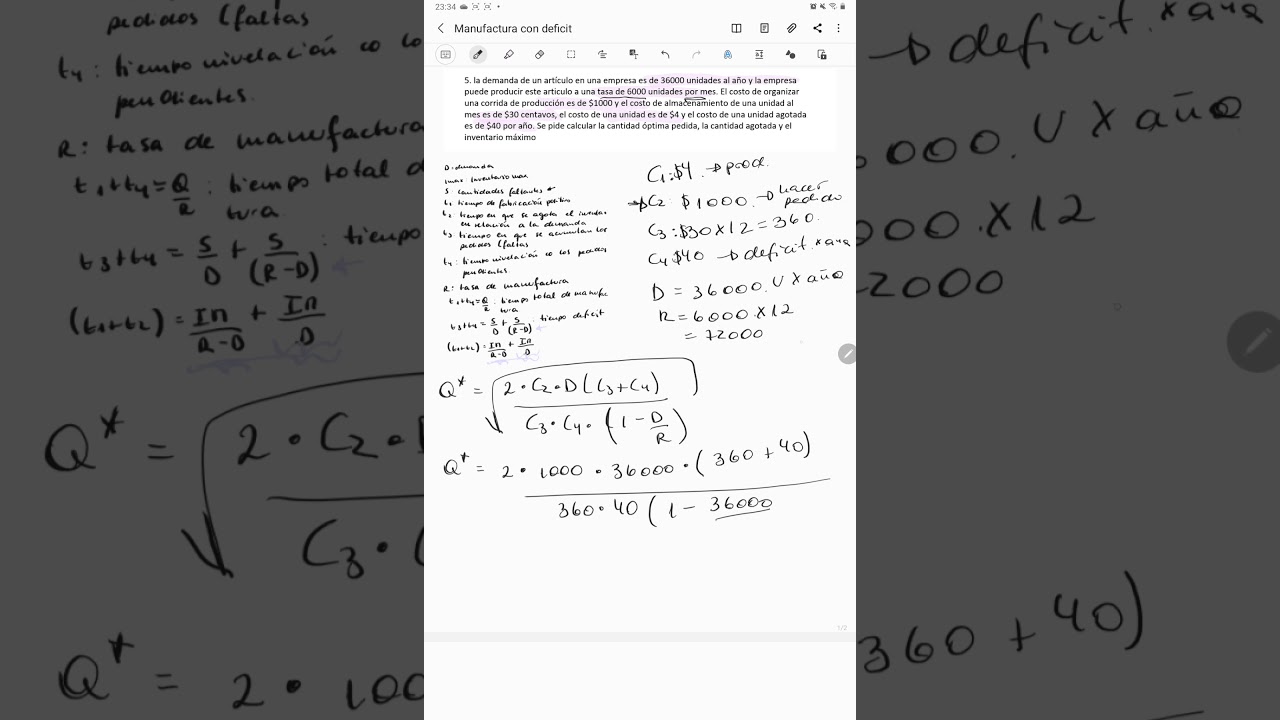 23:34
Manufactura con deficit
5. la demanda de un artículo en una empresa es de 36000 unidades al año y la empresa
puede producir este articulo a una tasa de 6000 unidades por mes. El costo de organizar
una corrida de producción es de $1000 y el costo de almacenamiento de una unidad al
mes es de $30 centavos, el costo de una unidad es de $4 y el costo de una unidad agotada
es de $40 por año. Se pide calcular la cantidad óptima pedida, la cantidad agotada y el
inventario máximo
D: demanda
Imax inventario max
S: cantidades faltantes
t1 tiempo de fabricación positivo
t2 tiempo en que se agota el inventar
en relación a la demanda
t3 tiempo en que se acumulan los
pedidos (faltas
t4: tiempo nivelación co los pedidos
pendientes.
R: tasa de manufactura
t1+t4=Q/R : tiempo total de manufac
tura
t3+t4 = S/D + S/(R-D) : tiempo deficit
(t1+t2) = In/R-D + In/D
C1: $4 → prod.
C2: $1000. → hacer
pedido
C3: $30 x 12 = 360.
C4 $40 → deficit. x aua
D = 36000. U x año
R = 6000. x 12
= 72000
Q* = √ 2 • C2 • D (C3+C4) / C3 • C4 • (1 - D/R)
Q* = 2 • 1000 • 36000 • (360 + 40)
360 • 40 (1 - 36000
1/2